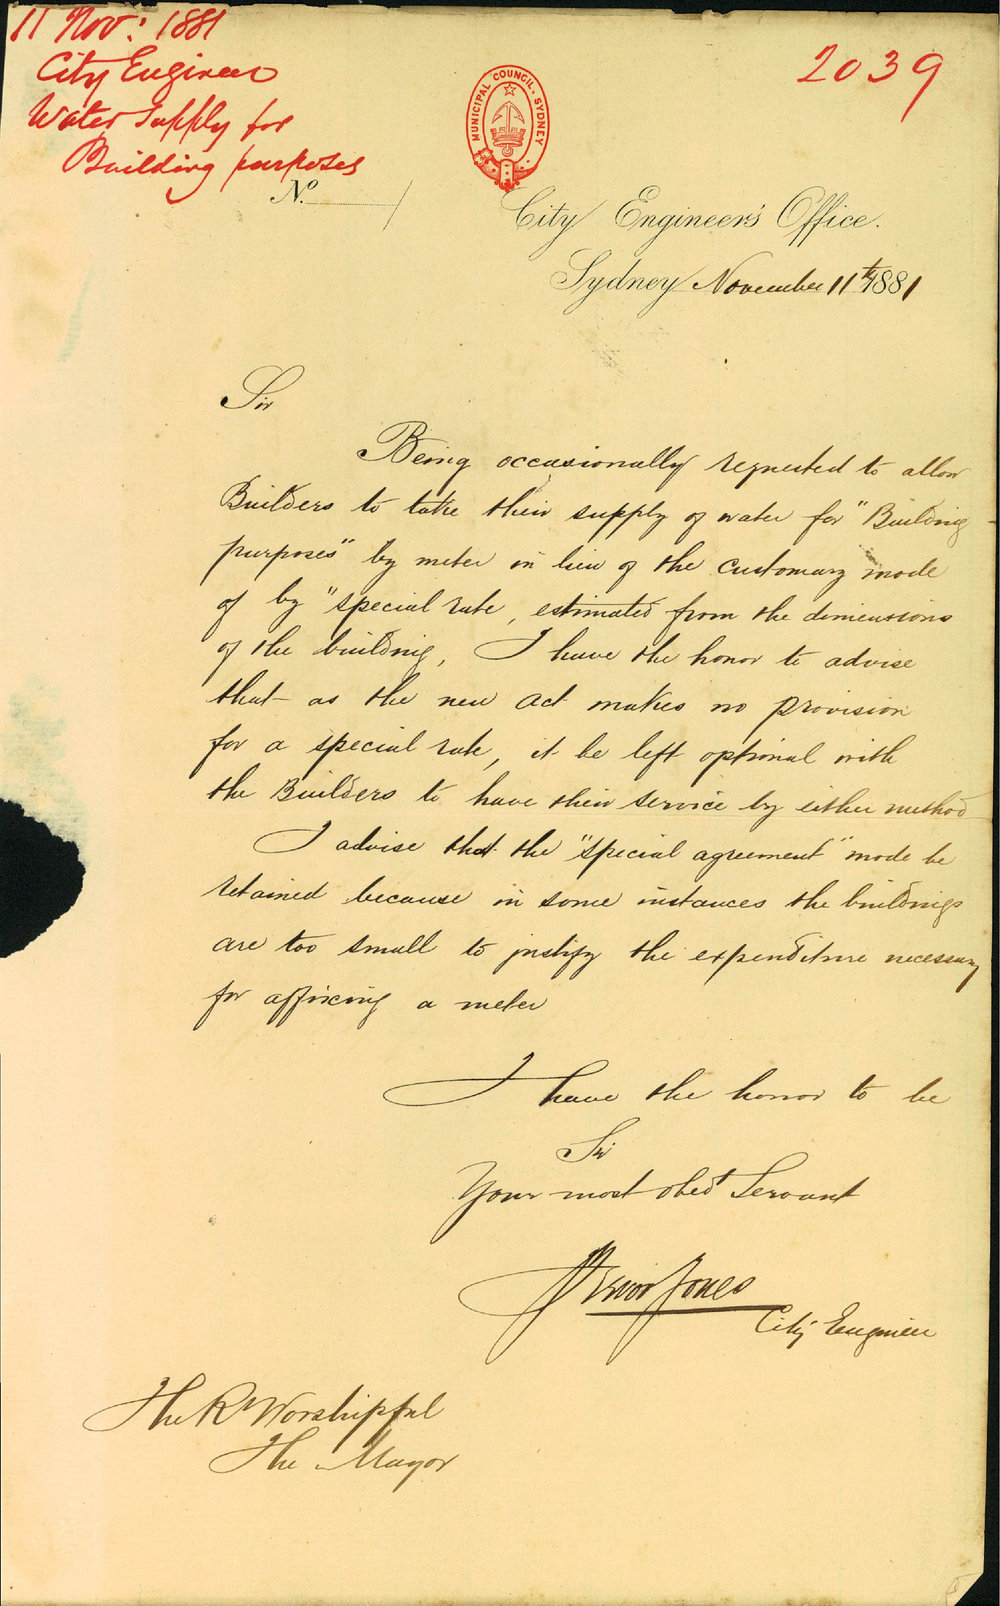 11 Nov: 1881
City Engineer
Water Supply for
Building purposes
2039
MUNICIPAL COUNCIL · SYDNEY
No.
City Engineer's Office.
Sydney November 11th 1881
Sir
Being occasionally requested to allow
Builders to take their supply of water for "Building
purposes" by meter in lieu of the customary mode
of by "special rate, estimated from the dimensions
of the building, I have the honor to advise
that as the new Act makes no provision
for a special rate, it be left optional with
the Builders to have their service by either method
I advise that the "special agreement" mode be
retained because in some instances the buildings
are too small to justify the expenditure necessary
for affixing a meter
I have the honor to be
Sir
Your most obedt Servant
Trevor Jones
City Engineer
The Rt Worshipful
The Mayor